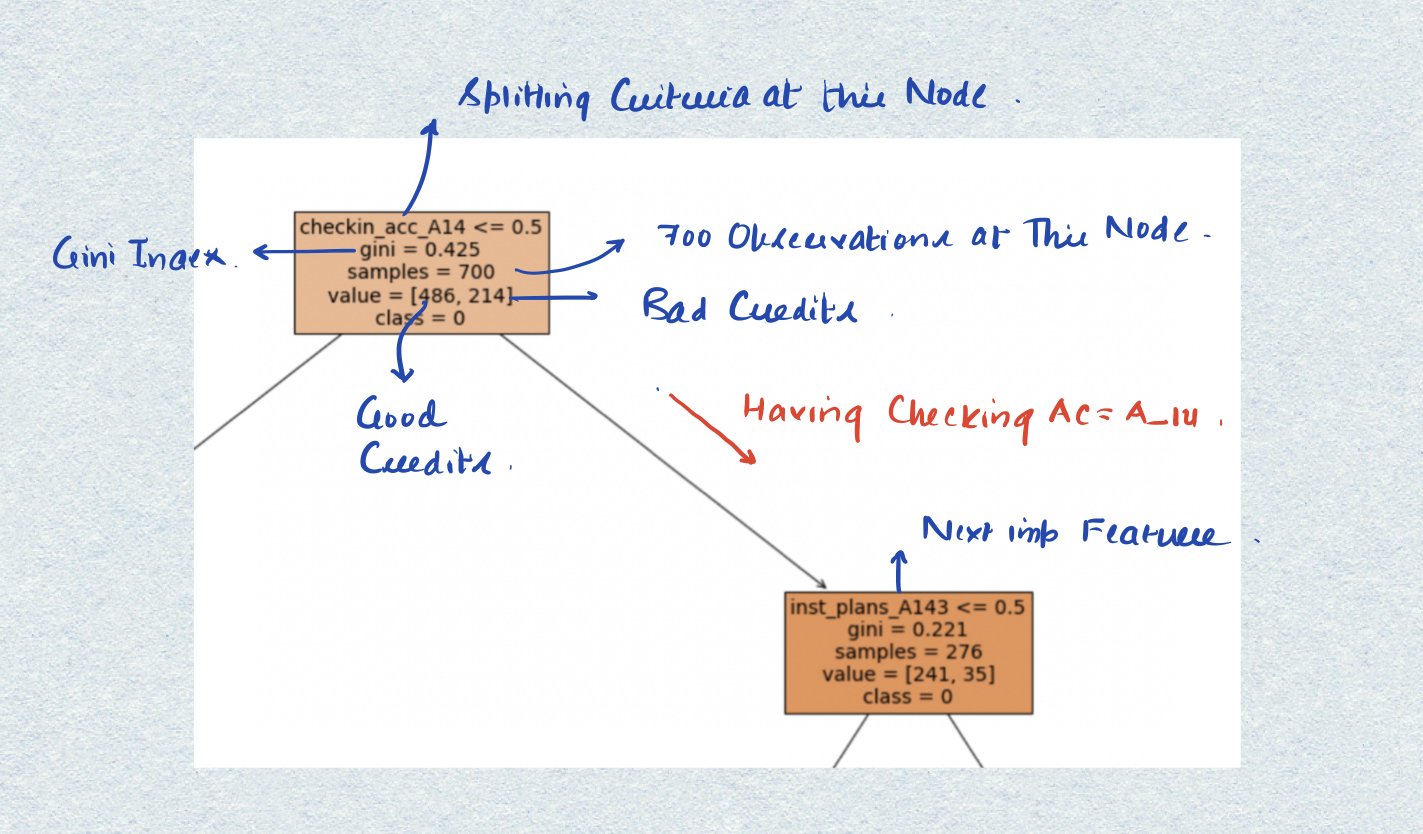 Splitting Criteria at this Node .
checkin_acc_A14 <= 0.5
gini = 0.425
samples = 700
value = [486, 214]
class = 0
Gini Index.
700 Observations at This Node .
Bad Credits .
Good
Credits .
Having Checking Ac = A_14 .
Next imp Feature .
inst_plans_A143 <= 0.5
gini = 0.221
samples = 276
value = [241, 35]
class = 0